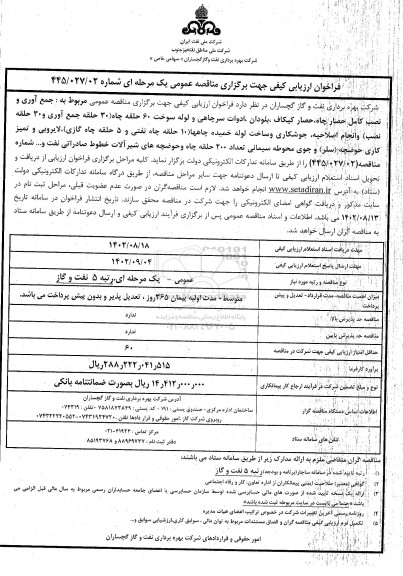 شرکت ملی نفت ایران
شرکت ملی مناطق نفتخیز جنوب
شرکت بهره برداری نفت و گاز گچساران « سهامی خاص »
فراخوان ارزیابی کیفی جهت برگزاری مناقصه عمومی یک مرحله ای شماره ۴۴۵/۰۲۷/۰۲
شرکت بهره برداری نفت و گاز گچساران در نظر دارد فراخوان ارزیابی کیفی جهت برگزاری مناقصه عمومی مربوط به : جمع آوری و
نصب کامل حصار چاه، حصار کیکاف ،بلودان ،ادوات سرچاهی و لوله سوخت ۶۰ حلقه چاه(۳۰ حلقه جمع آوری و ۳۰ حلقه
نصب) وانجام اصلاحیه، جوشکاری وساخت لوله خمیده چاهها(۱۰ حلقه چاه نفتی و ۵ حلقه چاه گازی)،لایروبی و تمیز
کاری حوضچه(سلر) و جوی محوطه سیمانی تعداد ۲۰۰ حلقه چاه وحوضچه های شیرآلات خطوط صادراتی نفت و...شماره
مناقصه(۴۴۵/۰۲۷/۰۲) را از طریق سامانه تدارکات الکترونیکی دولت برگزار نماید. کلیه مراحل برگزاری فراخوان ارزیابی از دریافت و
تحویل اسناد استعلام ارزیابی کیفی تا ارسال دعوتنامه جهت سایر مراحل مناقصه، از طریق درگاه سامانه تدارکات الکترونیکی دولت
(ستاد) به آدرس www.setadiran.ir انجام خواهد شد. لازم است مناقصه‌گران در صورت عدم عضویت قبلی، مراحل ثبت نام در
سایت مذکور و دریافت گواهی امضای الکترونیکی را جهت شرکت در مناقصه محقق سازند. تاریخ انتشار فراخوان در سامانه تاریخ
۱۴۰۲/۰۸/۱۳ می باشد. اطلاعات و اسناد مناقصه عمومی پس از برگزاری فرآیند ارزیابی کیفی و ارسال دعوتنامه از طریق سامانه ستاد
به مناقصه گران ارسال خواهد شد.
مهلت دریافت اسناد استعلام ارزیابی کیفی ۱۴۰۲/۰۸/۱۸
مهلت ارسال پاسخ استعلام ارزیابی کیفی ۱۴۰۲/۰۹/۰۴
نوع مناقصه و رتبه مورد نیاز عمومی – یک مرحله ای،رتبه ۵ نفت و گاز
میزان اهمیت مناقصه- مدت قرارداد- تعدیل و پیش پرداخت متوسط- مدت اولیه پیمان ۳۶۵روز ، تعدیل پذیر و بدون پیش پرداخت می باشد.
مناقصه حد پذیرش بالا: ندارد
مناقصه حد پذیرش پایین ندارد
حداقل امتیاز ارزیابی کیفی جهت شرکت در مناقصه ۶۰
برآورد کارفرما ۲۸۸,۲۲۲,۰۴۱,۵۱۵ریال
نوع و مبلغ تضمین شرکت در فرآیند ارجاع کار بیمانکاری ۱۴,۴۱۲,۰۰۰,۰۰۰ ریال بصورت ضمانتنامه بانکی
اطلاعات تماس دستگاه مناقصه گزار آدرس شرکت بهره برداری نفت و گاز گچساران
ساختمان اداره مرکزی- صندوق پستی : ۱۹۱ – کد پستی : ۷۵۸۱۸۷۳۸۴۹ – تلفن : ۰۷۴۳۱۹
تلفن های سامانه ستاد مرکز تماس : ۴۱۹۳۴-۰۲۱
دفتر ثبت نام : ۸۸۹۶۹۷۳۷ و ۸۵۱۹۳۷۶۸
مناقصه گران متقاضی ملزم به ارائه مدارک زیر از طریق سامانه ستاد می باشند:
۱) رتبه تایید شده در سامانه ساجار(برنامه و بودجه)رتبه ۵ نفت و گاز
۲) گواهی (معتبر) صلاحیت ایمنی پیمانکاران از اداره تعاون، کار و رفاه اجتماعی
۳) ارائه یک نسخه تایید شده از صورت های مالی حسابرسی شده توسط سازمان حسابرسی یا اعضای جامعه حسابداران رسمی مربوط به سال مالی قبل الزامی می
۴) روزنامه رسمی آخرین تغییرات شرکت در خصوص ترکیب اعضای هیات مدیره
۵) تکمیل فرم ارزیابی کیفی مناقصه گران و الصاق مستندات مربوط به توان مالی ، سوابق کاری،ارزشیابی سوابق و...
امور حقوقی و قراردادهای شرکت بهره برداری نفت و گاز گچساران